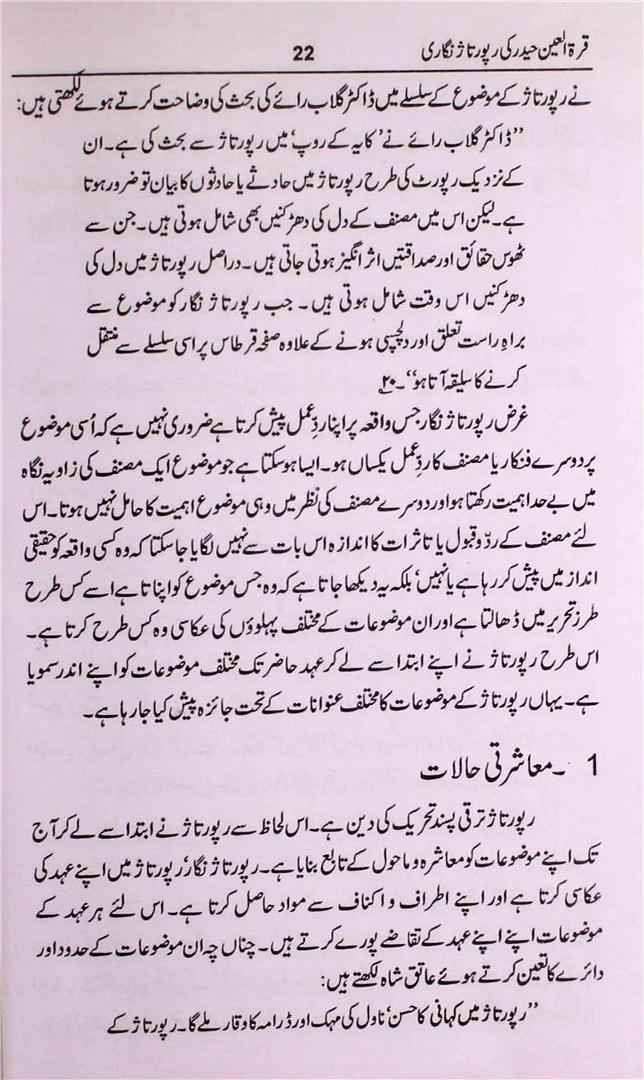 قرۃ العین حیدر کی رپورتاژ نگاری
22
نے رپورتاژ کے موضوع کے سلسلے میں ڈاکٹر گلاب رائے کی بحث کی وضاحت کرتے ہوئے لکھتی ہیں:
”ڈاکٹر گلاب رائے نے ’کایہ کے روپ‘ میں رپورتاژ سے بحث کی ہے۔ ان
کے نزدیک رپورٹ کی طرح رپورتاژ میں حادثے یا حادثوں کا بیان تو ضرور ہوتا
ہے۔ لیکن اس میں مصنف کے دل کی دھڑکنیں بھی شامل ہوتی ہیں۔ جن سے
ٹھوس حقائق اور صداقتیں اثر انگیز ہوتی جاتی ہیں۔ دراصل رپورتاژ میں دل کی
دھڑکنیں اس وقت شامل ہوتی ہیں۔ جب رپورتاژ نگار کو موضوع سے
براہِ راست تعلق اور دلچسپی ہونے کے علاوہ صفحہ قرطاس پر اسی سلسلے سے منتقل
کرنے کا سلیقہ آتا ہو“۔ ۲۰
غرض رپورتاژ نگار جس واقعہ پر اپنا ردِّعمل پیش کرتا ہے ضروری نہیں ہے کہ اُسی موضوع
پر دوسرے فنکار یا مصنف کا ردِّعمل یکساں ہو۔ ایسا ہوسکتا ہے جو موضوع ایک مصنف کی زاویہ نگاہ
میں بے حد اہمیت رکھتا ہو اور دوسرے مصنف کی نظر میں وہی موضوع اہمیت کا حامل نہیں ہوتا۔ اس
لئے مصنف کے ردّ و قبول یا تاثرات کا اندازہ اس بات سے نہیں لگایا جاسکتا کہ وہ کسی واقعہ کو حقیقی
انداز میں پیش کر رہا ہے یا نہیں‘ بلکہ یہ دیکھا جاتا ہے کہ وہ جس موضوع کو اپناتا ہے اسے کس طرح
طرز تحریر میں ڈھالتا ہے اور ان موضوعات کے مختلف پہلوؤں کی عکاسی وہ کس طرح کرتا ہے۔
اس طرح رپورتاژ نے اپنے ابتدا سے لے کر عہد حاضر تک مختلف موضوعات کو اپنے اندر سمویا
ہے۔ یہاں رپورتاژ کے موضوعات کا مختلف عنوانات کے تحت جائزہ پیش کیا جارہا ہے۔
1 ۔ معاشرتی حالات
رپورتاژ ترقی پسند تحریک کی دین ہے۔ اس لحاظ سے رپورتاژ نے ابتدا سے لے کر آج
تک اپنے موضوعات کو معاشرہ و ماحول کے تابع بنایا ہے۔ رپورتاژ نگار‘ رپورتاژ میں اپنے عہد کی
عکاسی کرتا ہے اور اپنے اطراف و اکناف سے مواد حاصل کرتا ہے۔ اس لئے ہر عہد کے
موضوعات اپنے اپنے عہد کے تقاضے پورے کرتے ہیں۔ چناں چہ ان موضوعات کے حدود اور
دائرے کا تعین کرتے ہوئے عاتق شاہ لکھتے ہیں:
”رپورتاژ میں کہانی کا حسن‘ ناول کی مہک اور ڈرامہ کا وقار ملے گا۔ رپورتاژ کے